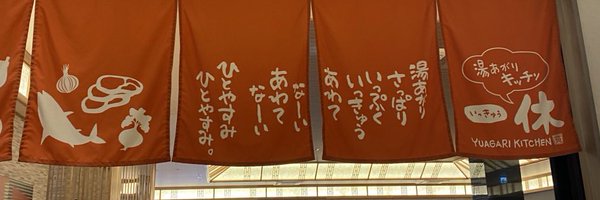 湯あがり
キッチン
いっきゅう
一休
YUAGARI KITCHEN
湯あがり
さっぱり
いっぷく
いっきゅう
あわて
あわて
なーい
なーい
ひとやすみ
ひとやすみ。